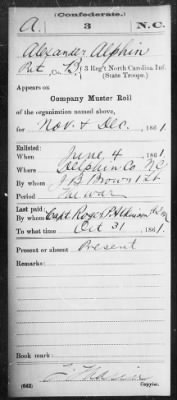 (Confederate.)
A. 3 N.C.
Alexander Alphin
Pvt., Co. B, 3 Reg't North Carolina Inf.
(State Troops.)
Appears on
Company Muster Roll
of the organization named above,
for Nov. & Dec., 1861.
Enlisted:
When June 4, 1861.
Where Duplin Co NC
By whom J B Brown 1 Lt
Period The war
Last paid:
By whom Capt Roger P Atkinson
To what time Oct 31, 1861.
Present or absent Present
Remarks:
Book mark:
(642) Copyist.